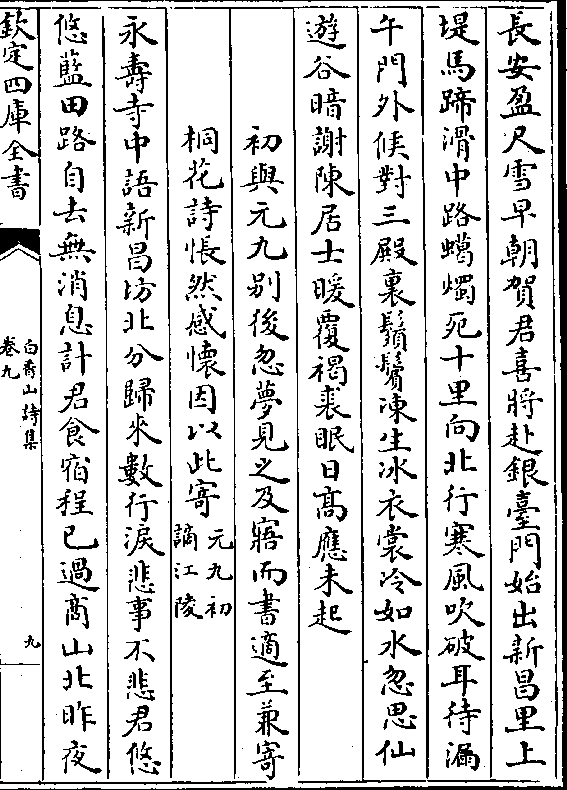 長安盈尺雪早朝賀君喜將赴銀臺門始出新昌里上
堤馬蹄滑中路蠟燭死十里向北行寒風吹破耳待漏
午門外候對三殿裏鬚鬢凍生冰衣裳冷如水忽思仙
遊谷暗謝陳居士暖覆褐裘眠日髙應未起
初與元九别後忽夢見之及寤而書適至兼寄
桐花詩悵然感懷因以此寄元九初謫江陵
永壽寺中語新昌坊北分歸來數行淚悲事不悲君悠
悠藍田路自去無消息計君食宿程已過商山北昨夜
欽定四庫全書
白香山詩集
卷九
九